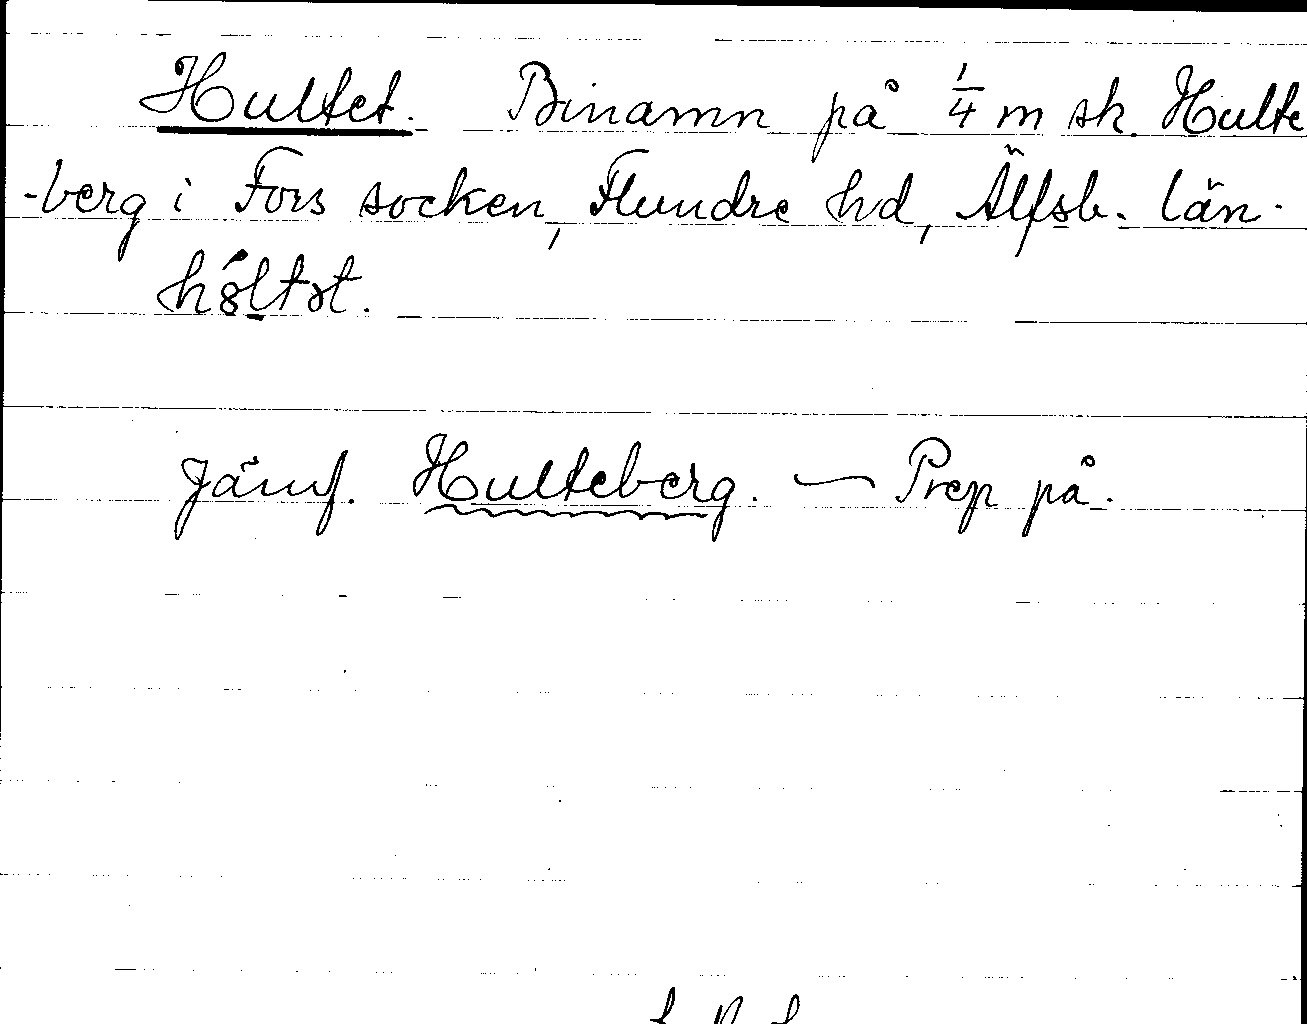 Hultet. Binamn på 1/4 m sk. Hulte
-berg i Fors socken, Flundre hd, Älfsb. län.
Jämf. Hulteberg. — Prep på.